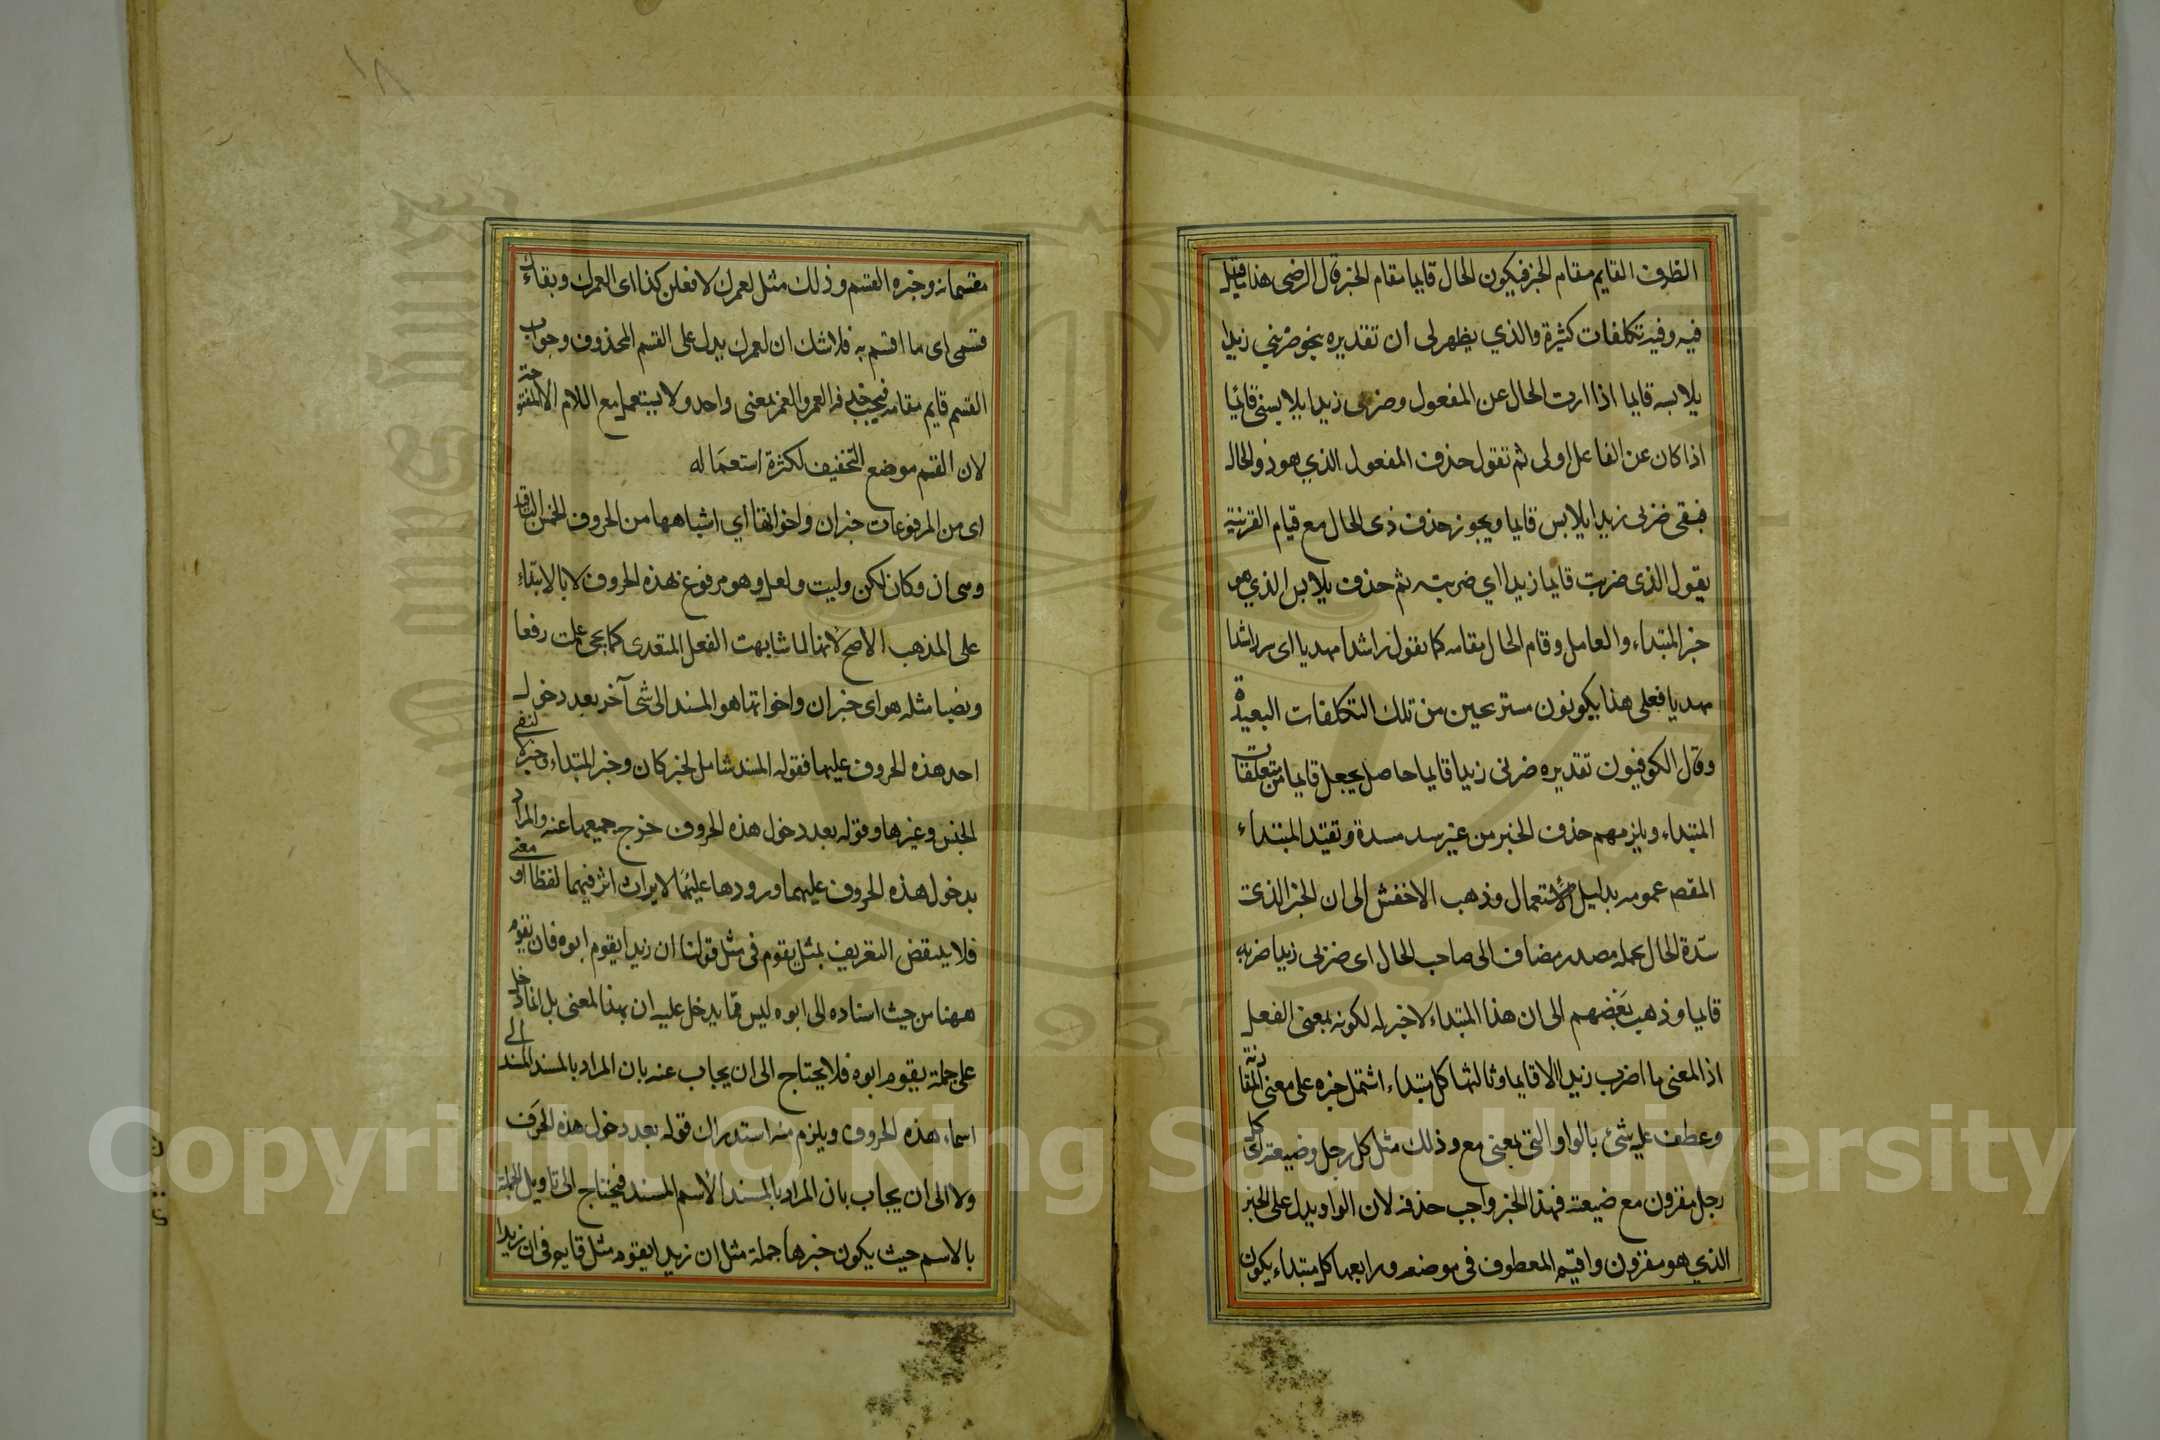 الظرف القايم مقام الخبر فيكون الحال قايما مقام الخبر قال الرضى هذا ما قيل
فيه وفيه تكلفات كثيرة والذي يظهر لى ان تقديره بنحو ضربي زيدا
يلابسه قايما اذا اردت الحال عن المفعول وضربى زيدا يلابسنى قائما
اذا كان عن الفاعل اولى ثم تقول حذف المفعول الذي هو ذو الحال
فبقى ضربى زيدا يلابس قايما ويجوز حذف ذى الحال مع قيام القرينة
يقول الذى ضربت قايما زيدا اي ضربته ثم حذف يلابس الذي هو
خبر المبتداء والعامل وقام الحال مقامه كما تقول راشدا مهديا اى سر راشدا
مهديا فعلى هذا يكونون مستريحين من تلك التكلفات البعيدة
وقال الكوفيون تقديره ضربى زيدا قايما حاصل بجعل قايما من متعلقات
المبتداء ويلزمهم حذف الخبر من غير سد مسدة وتقيد المبتداء
المقصم عمومه بدليل الاستعمال وذهب الاخفش الى ان الخبر الذى
سدة الحال محله مصدر مضاف الى صاحب الحال اى ضربى زيدا ضربه
قايما وذهب بعضهم الى ان هذا المبتداء لا خبر له لكونه بمعنى الفعل
اذ المعنى ما اضرب زيدا الا قايما وثالثها كل مبتداء اشتمل خبره على معنى المقارنة
وعطف عليه شئ بالواو التى بمعنى مع وذلك مثل كل رجل وضيعته اى كل
رجل مقرون مع ضيعته فهذا الخبر واجب حذفه لان الواو يدل على الخبر
الذي هو مقرون واقيم المعطوف فى موضعه ورابعها كل مبتداء يكون
مقسما به وخبره القسم وذلك مثل لعمرك لافعلن كذا اى لعمرك وبقاءك
قسمى اى ما اقسم به فلا شك ان لعمرك يدل على القسم المحذوف وجواب
القسم قايم مقامه فيجب حذفه العمر والعمر بمعنى واحد ولا يستعمل مع اللام الا المفتوحة
لان القسم موضع التخفيف لكثرة استعماله
اى من المرفوعات خبر ان واخواتها اي اشباهها من الحروف الخمس الباقية
وهى ان وكان لكن وليت ولعل وهو مرفوع بهذه الحروف لا بالابتداء
على المذهب الاصح لانها لما شابهت الفعل المتعدى كما يجى عملت رفعا
ونصبا مثله هو اى خبر ان واخواتها هو المسند الى شى آخر بعد دخول
احد هذه الحروف عليهما فقوله المسند شامل لخبر كان وخبر المبتداء وخبر لا لنفى
الجنس وغيرها وقوله بعد دخول هذه الحروف خرج جميعها عنه والمراد
بدخول هذه الحروف عليهما ورودها عليهما لايراث اثر فيهما لفظا او معنى
فلا ينتقض التعريف بمثل يقوم فى مثل قولنا ان زيدا يقوم ابوه فان يقوم
ههنا من حيث اسناده الى ابوه ليس مما يدخل عليه ان بهذا المعنى بل انما دخل
على جملة يقوم ابوه فلا يحتاج الى ان يجاب عنه بان المراد بالمسند المسند الى
اسماء هذه الحروف ويلزم منه استدراك قوله بعد دخول هذه الحروف
ولا الى ان يجاب بان المراد بالمسند الاسم المسند فيحتاج الى تاويل الجملة
بالاسم حيث يكون خبرها جملة مثل ان زيدا يقوم مثل قايم فى ان زيدا
Copyright © King Saud University
1957